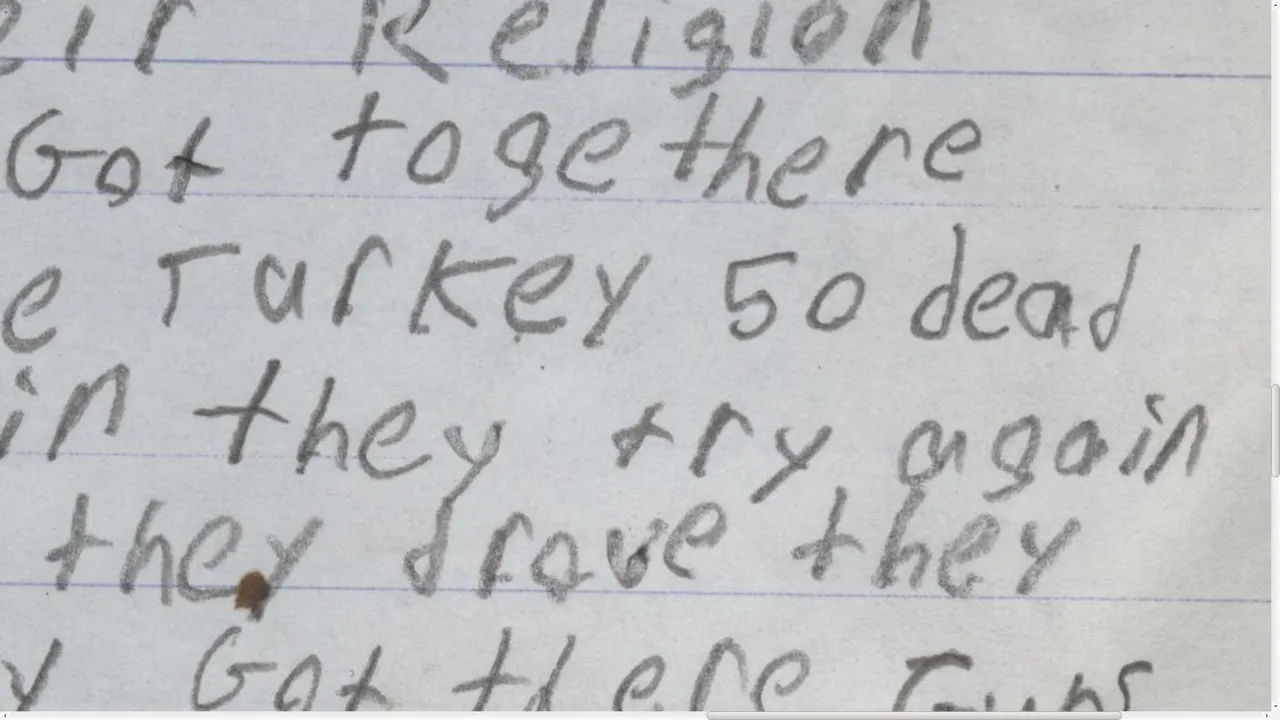 eir Religion
Got togethere
e Turkey 50 dead
in they try again
they drove they
y Got there Guns